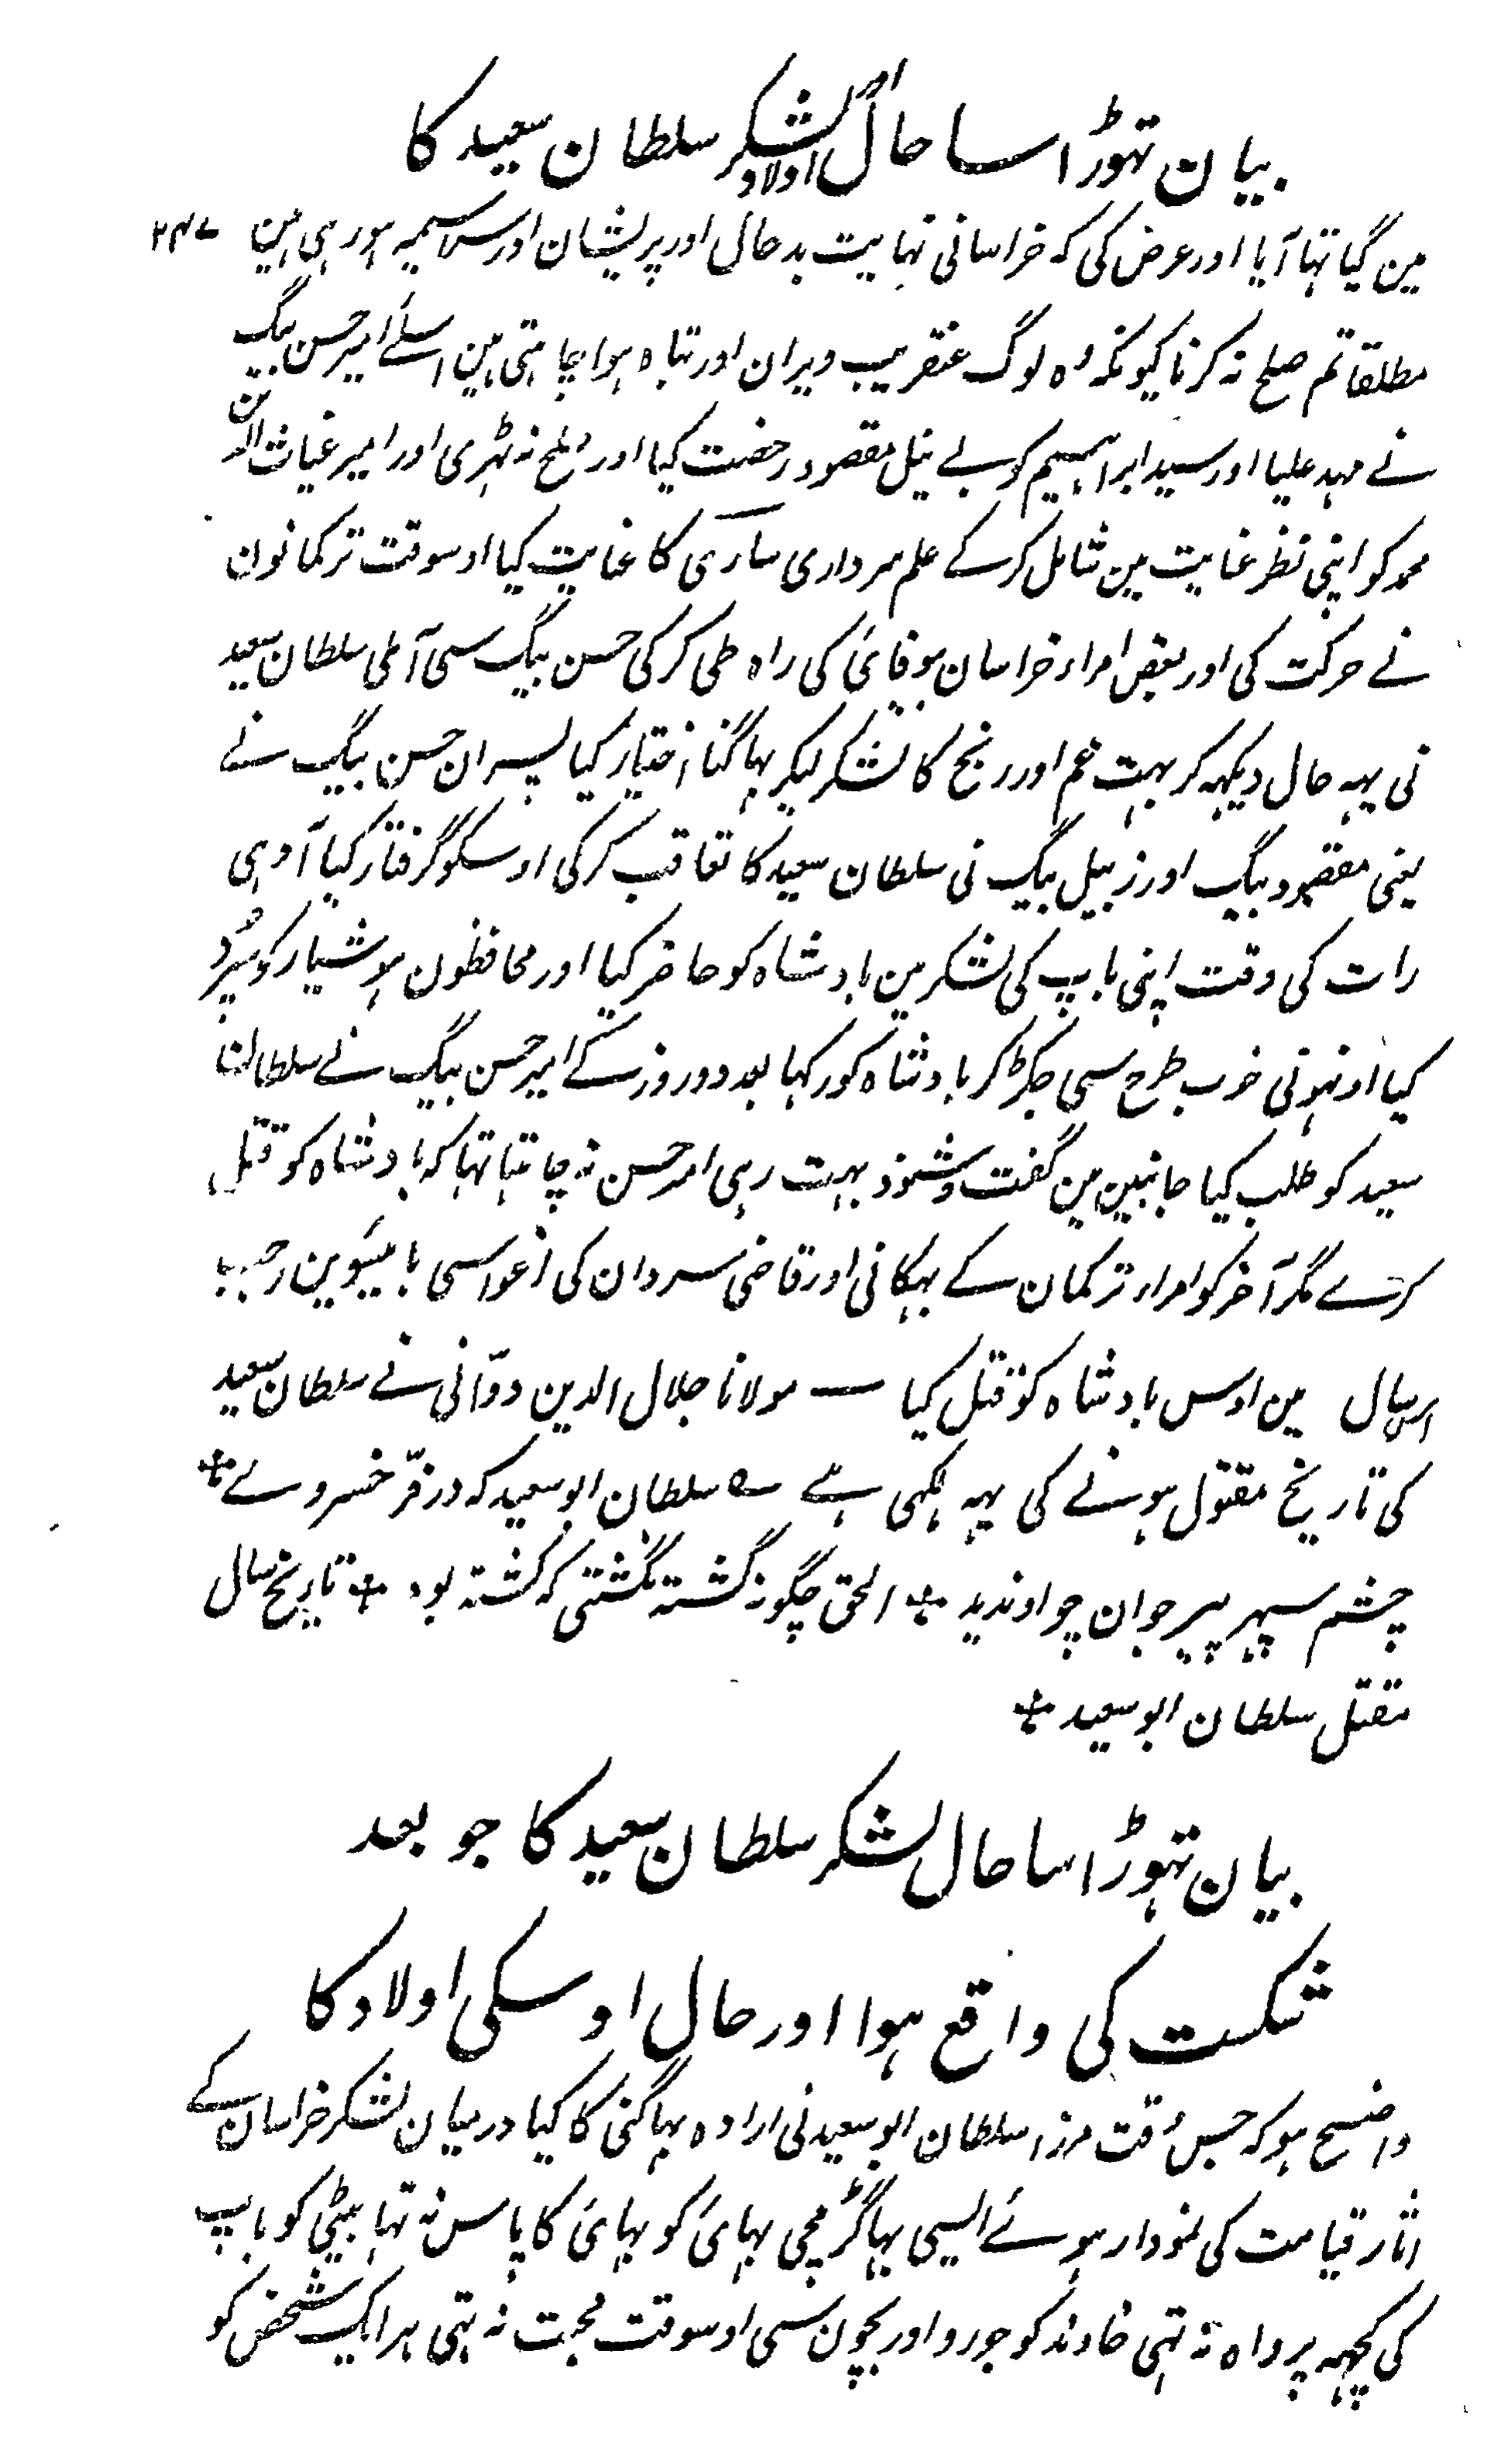 بیان تہوڑا سا حال لشکر اور اولاد سلطان سعید کا
۲۴۷
مین گیا تہا آیا اور عرض کی کہ خراسانی نہایت بد حال اور پریشان اور سراسیمہ ہو رہی ہین
مطلقا تم صلح نہ کرنا کیونکہ وہ لوگ عنقریب ویران اور تباہ ہوا چاہتی ہین اسلئے امیر حسن بیگ
نے مہد علیا اور سید ابراہیم کو بے نیل مقصود رخصت کیا اور صلح نہ ٹہری اور امیر غیاث الدین
محمد کو اپنی نظر عنایت مین شامل کر کے علم سرداری ساری کا عنایت کیا اوسوقت ترکمانون
نے حرکت کی اور بعض امراء خراسان بیوفائی کی راہ طی کر کی حسن بیگ سی آملی سلطان سعید
نی یہہ حال دیکہہ کر بہت غم اور رنج کا لشکر لیکر بہاگنا اختیار کیا پسران حسن بیگ نے
یعنی مقصود بیگ اور زنبیل بیگ نی سلطان سعید کا تعاقب کر کی اوسکو گرفتار کیا آدہی
رات کی وقت اپنی باپ کی لشکر مین بادشاہ کو حاضر کیا اور محافظون ہوشیار کو سپرد
کیا اونہونی خوب طرح سی جکڑ کر بادشاہ کو رکہا بعد دو روز کے امیر حسن بیگ نے سلطان
سعید کو طلب کیا جانبین مین گفت و شنود بہت رہی امیر حسن نہ چاہتا تہا کہ بادشاہ کو قتل
کرے مگر آخر کو امراء ترکمان کے بہکانی اور قاضی سردان کی اغوا سی بائیسوین رجب
اسی سال مین اوس بادشاہ کو قتل کیا — مولانا جلال الدین دوّانی نے سلطان سعید
کی تاریخ مقتول ہونے کی یہہ لکہی ہے سلطان ابو سعید کہ در فرّ خسروے
چشم سپہر پیر جوان چو او ندید الحق چگونہ گشتہ نگشتی کہ کشتہ بود تاریخ سال
مقتل سلطان ابو سعید
بیان تہوڑا سا حال لشکر سلطان سعید کا جو بعد
شکست کی واقع ہوا اور حال اوسکی اولاد کا
واضح ہو کہ جس وقت مرزا سلطان ابو سعید نی ارادہ بہاگنی کا کیا درمیان لشکر خراسان کے
اثار قیامت کی نمودار ہوئے ایسی بہاگڑ مچی بہائی کو بہائی کا پاس نہ تہا بیٹی کو باپ
کی کچہہ پرواہ نہ تہی خاوند کو جورو اور بچون سی اوسوقت محبت نہ تہی ہر ایک شخص کو